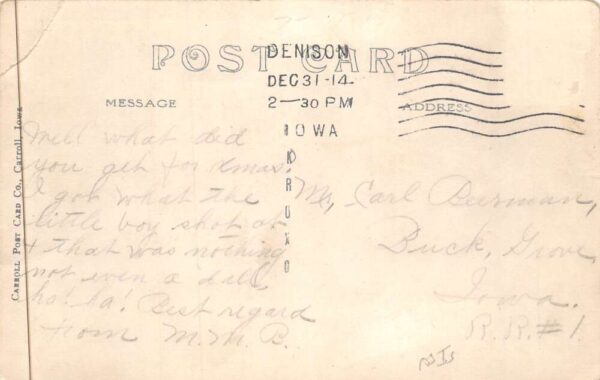 POST CARD
DENISON
DEC 31-14.
2-30 PM
IOWA
MESSAGE
ADDRESS
KRUXO
CARROLL POST CARD CO., Carroll, Iowa
Well what did
you get for Xmas.
I got what the
little boy shot at
+ that was nothing
not even a doll
ha! ha! Best regard
from M. M. B.
Mr. Carl
Buck, Grove,
Iowa.
R.R.#1.